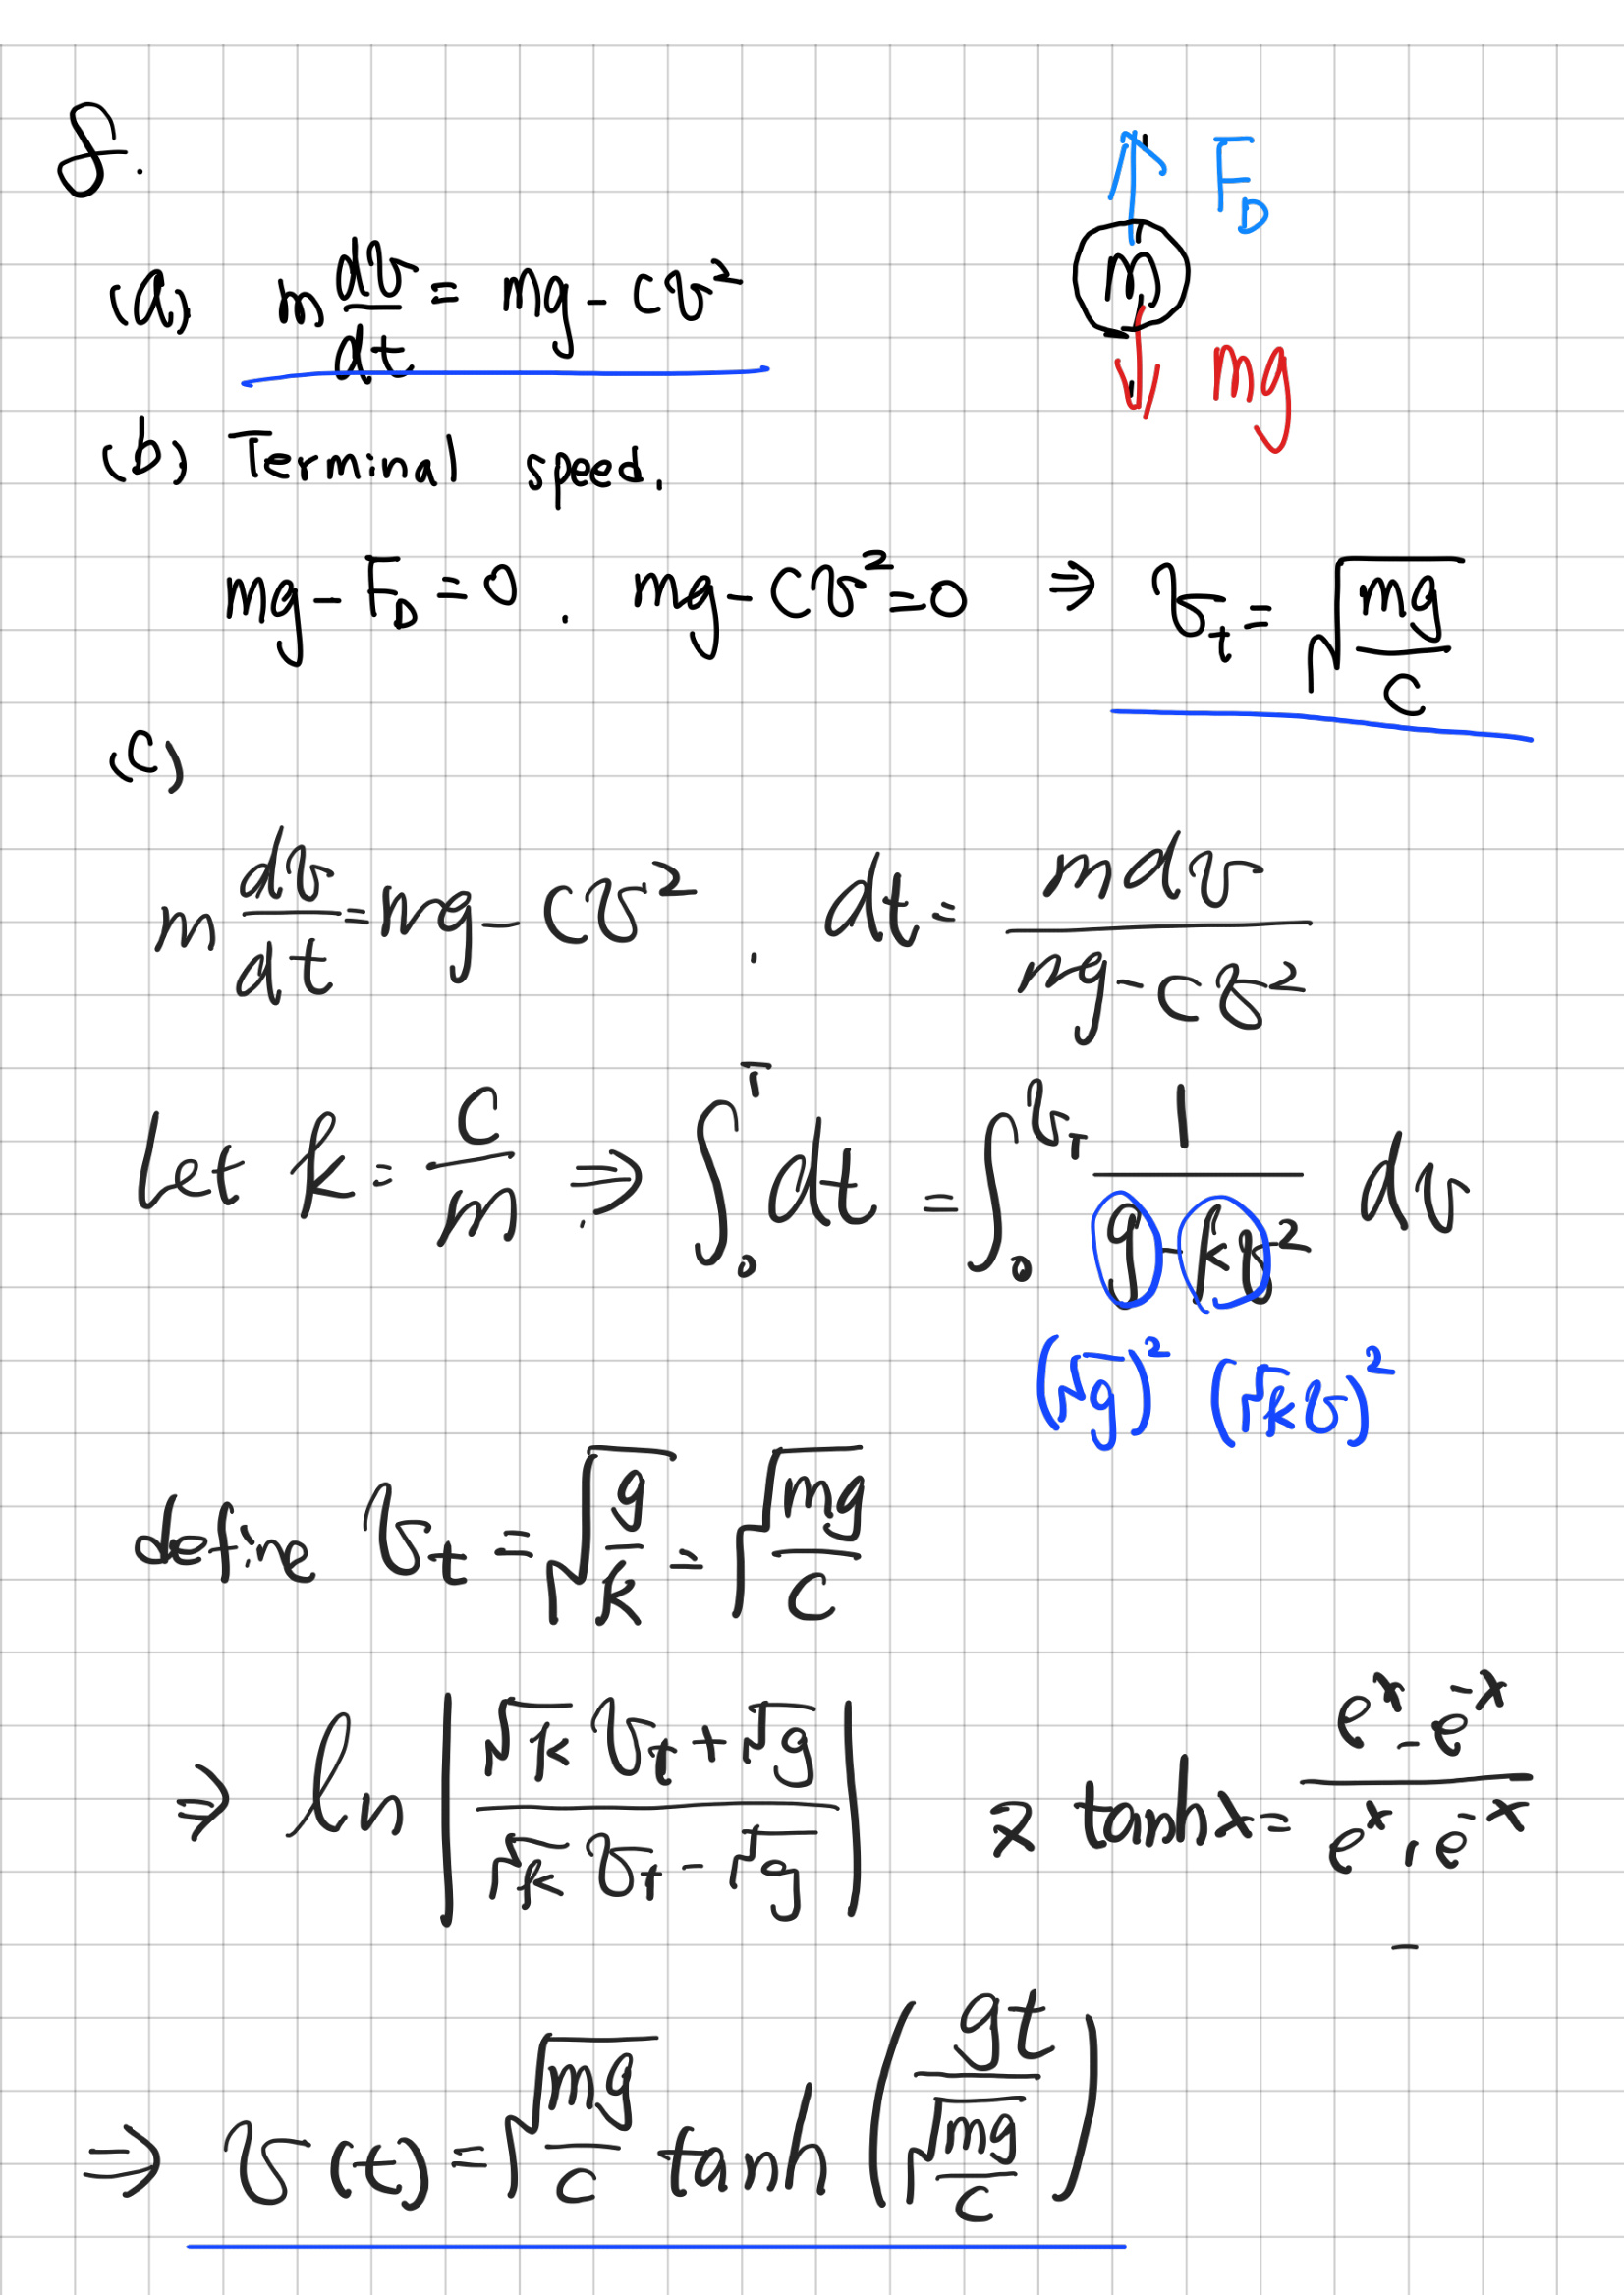 8.
F_D
m
mg
(a) m dv/dt = mg - cv²
(b) Terminal speed.
mg - F_D = 0 . mg - cv² = 0 ⇒ v_t = √(mg/c)
(c)
m dv/dt = mg - cv² . dt = mdv/(mg - cv²)
Let k = c/m . ⇒ ∫₀^T dt = ∫₀^(v_T) 1/(g - kv²) dv
(√g)² (√k v)²
define v_t = √(g/k) = √(mg/c)
⇒ ln |(√k v_t + √g)/(√k v_t - √g)| tanh x = (e^x - e^-x)/(e^x + e^-x)
⇒ v(t) = √(mg/c) tanh (gt/√(mg/c))